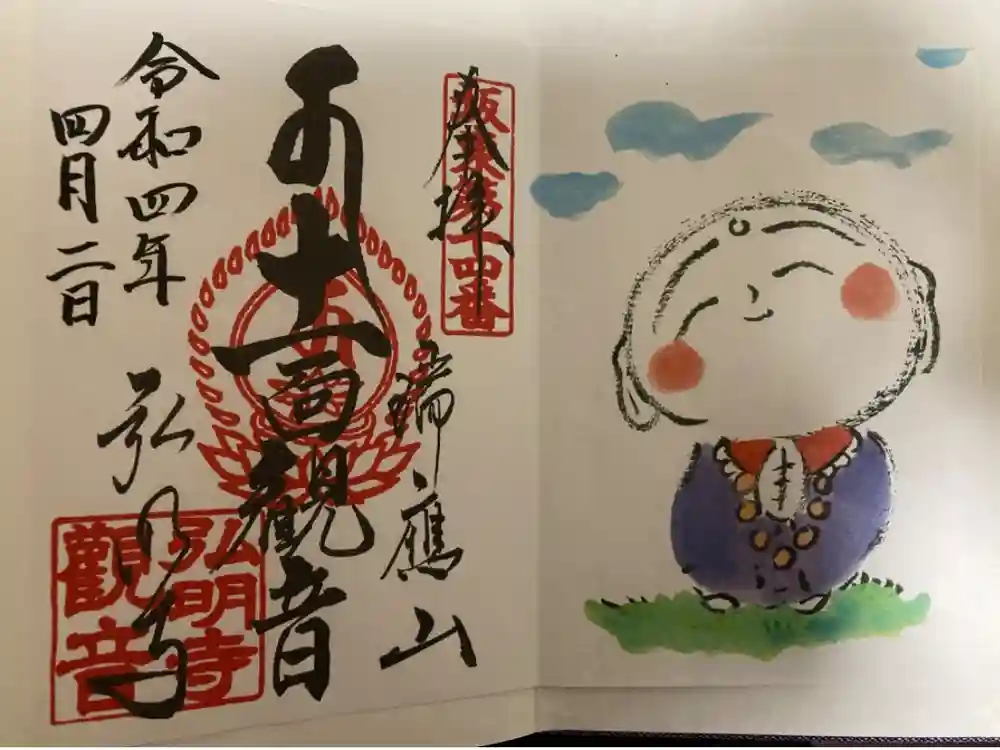 奉拝
坂東第十四番
瑞應山
十一面観音
令和四年
四月二日
弘明寺
弘明寺
觀音